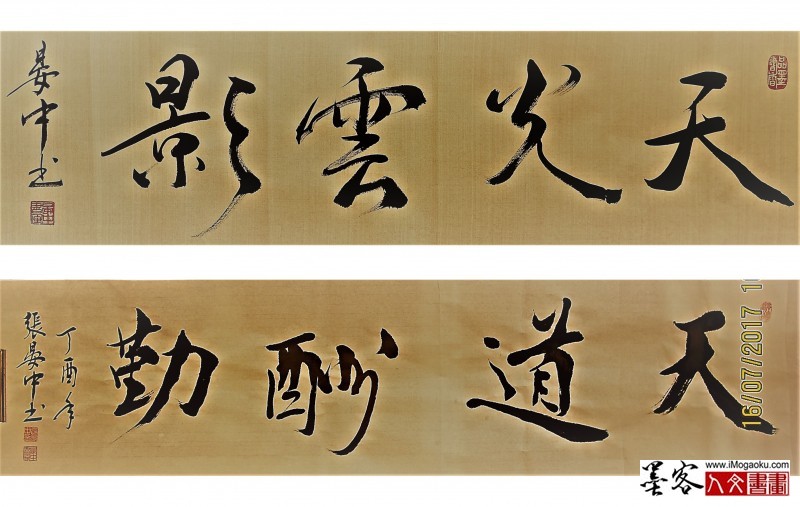 天光雲影
晏中书
天道酬勤
丁酉年
張晏中书
16/07/2017
墨客
www.iMogaoku.com
人文書畫